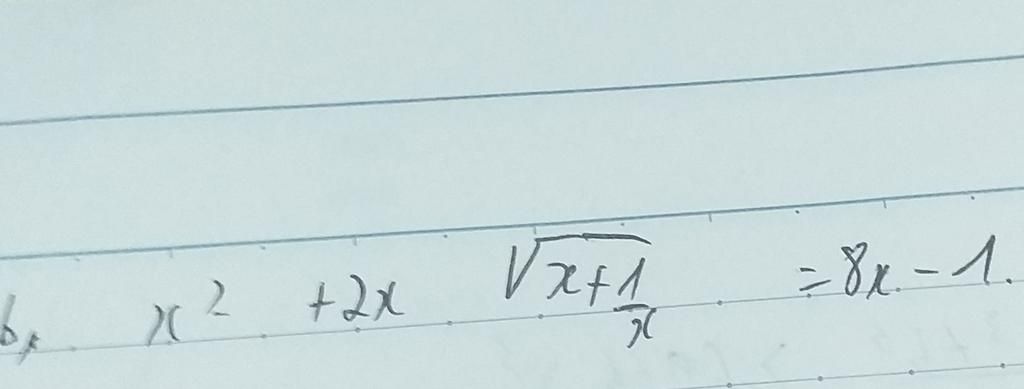 b, x² + 2x √(x + 1/x) = 8x - 1.